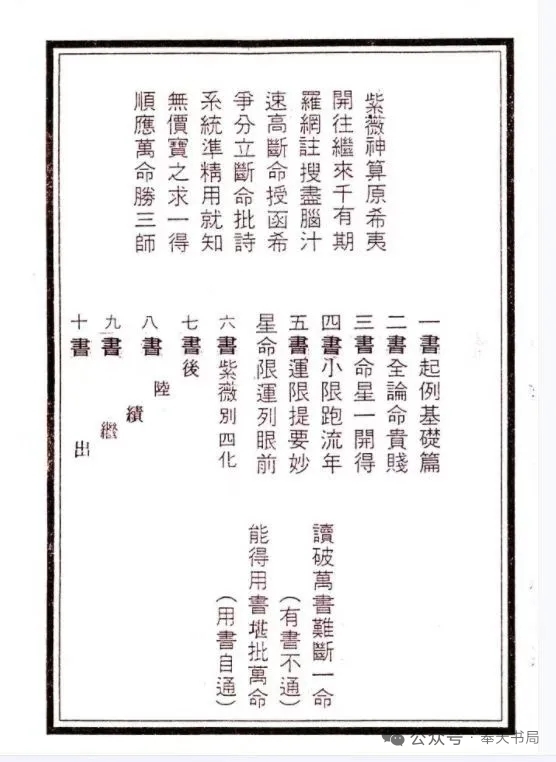 紫薇神算原希夷
開往繼來千有期
羅網註搜盡腦汁
速高斷命授函希
爭分立斷命批詩
系統準精用就知
無價寶之求一得
順應萬命勝三師
一書起例基礎篇
二書全論命貴賤
三書命星一開得
四書小限跑流年
五書運限提要妙
星命限運列眼前
六書紫薇別四化
七書後
八書
九書
十書
陸績繼出
讀破萬書難斷一命
（有書不通）
能得用書堪批萬命
（用書自通）
公众号·奉天书局